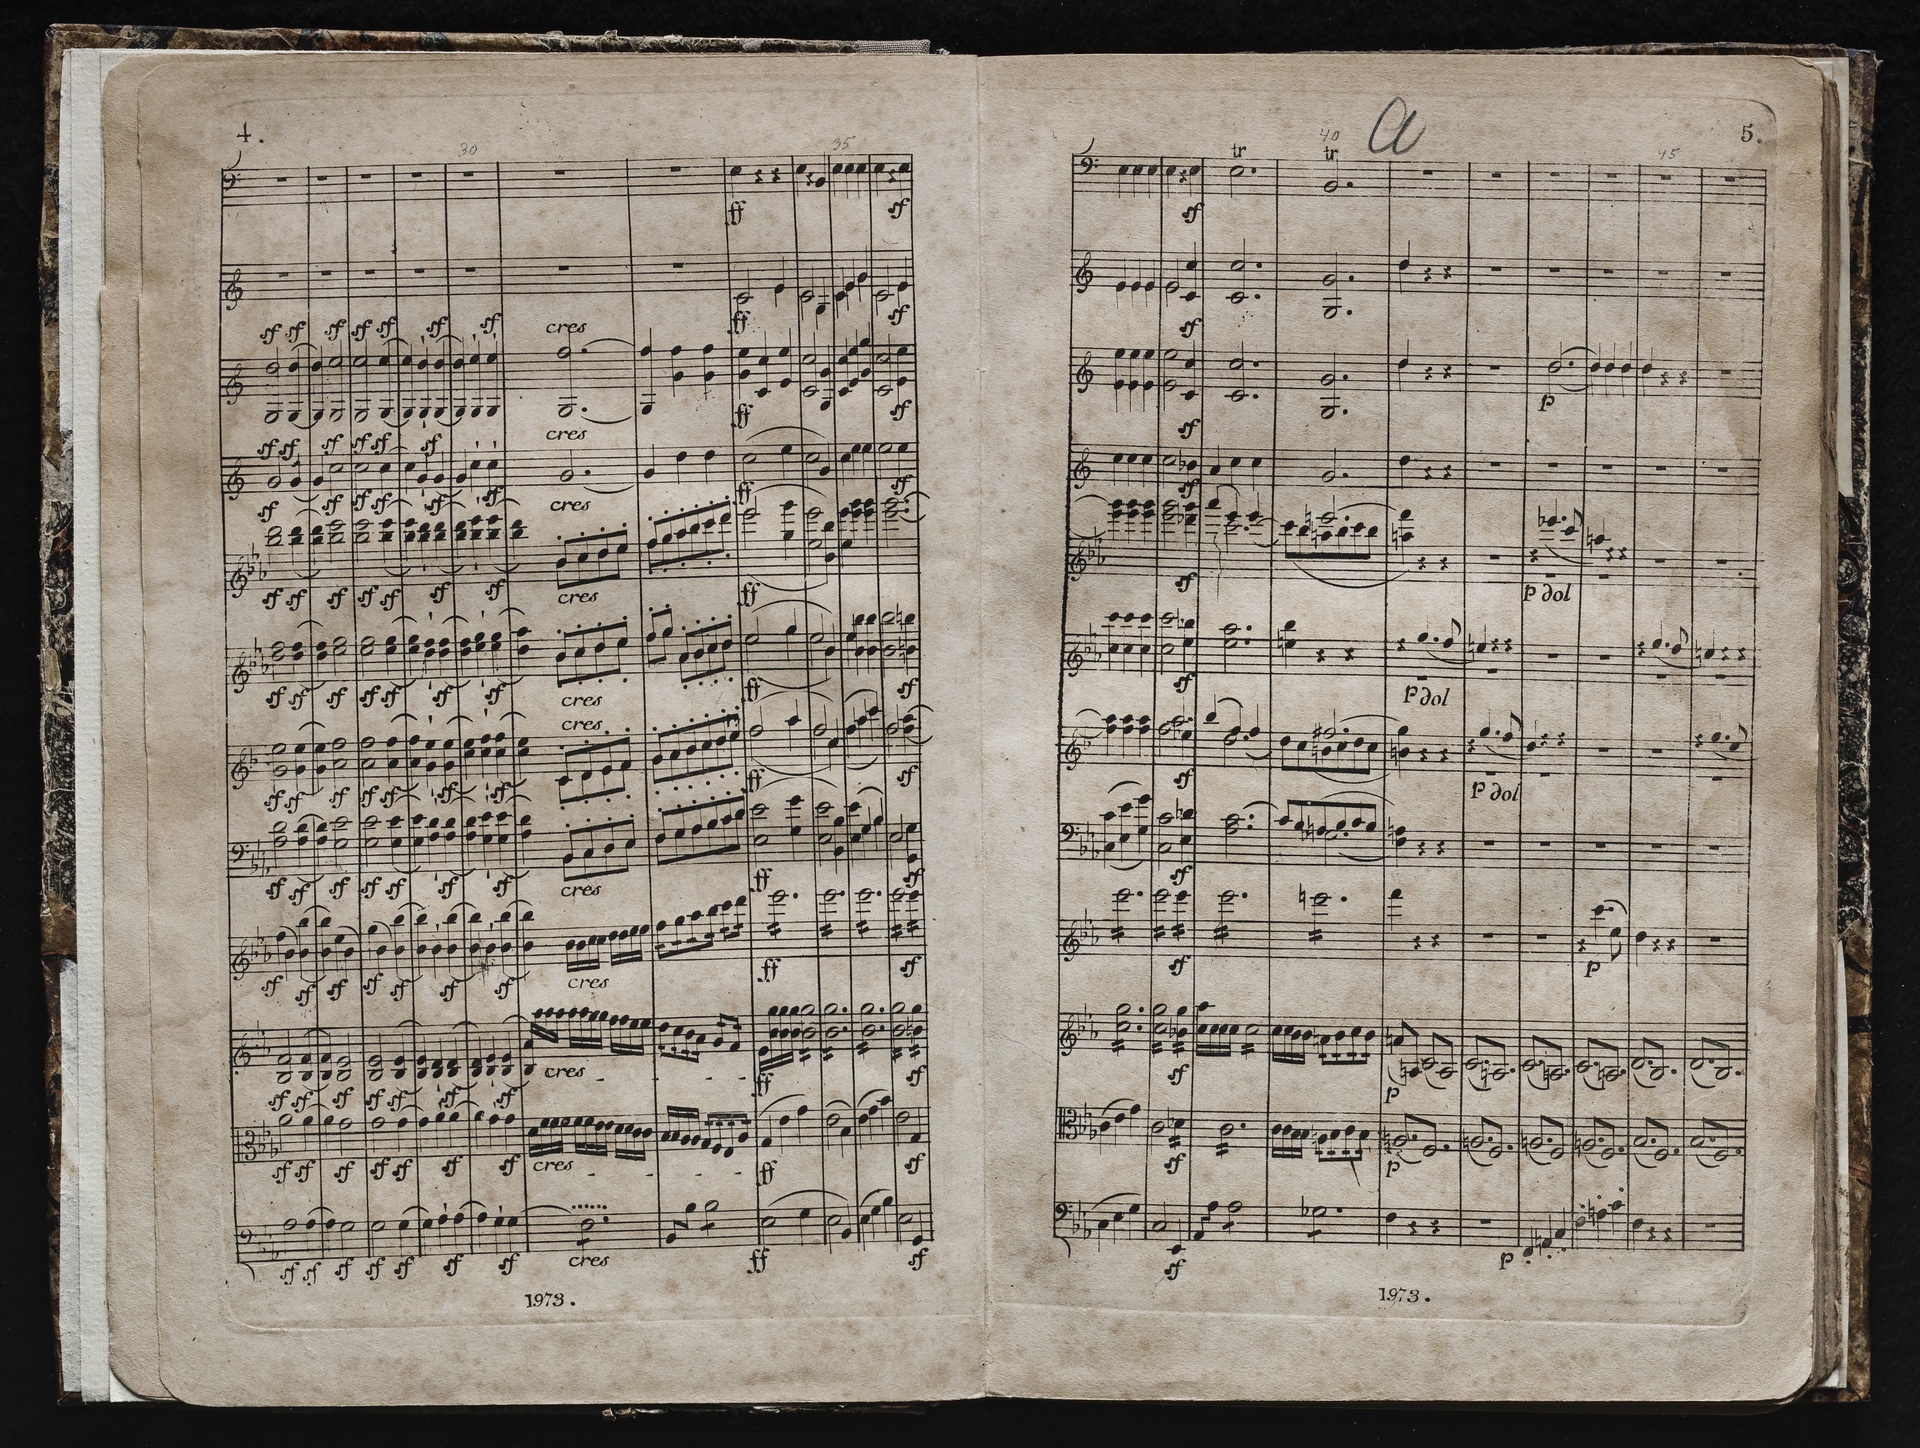 4.
30
35
ff
sf
sf sf sf sf sf sf sf cres ff sf
sf sf sf sf sf sf cres
sf sf sf sf sf cres ff sf
sf sf sf sf sf sf sf cres ff
sf sf sf sf sf sf sf cres ff sf
cres
sf sf sf sf sf sf sf ff sf
sf sf sf sf sf sf sf cres ff sf
sf sf sf sf sf sf sf cres ff sf
sf sf sf sf sf sf sf cres ff sf
sf sf sf sf sf sf sf cres ff sf
sf sf sf sf sf sf sf cres ff sf
1973.
5.
40
a
45
tr tr
sf
sf
p
sf
sf
sf p dol
sf p dol
sf p dol
sf
sf p
sf p
sf p
sf p
1973.